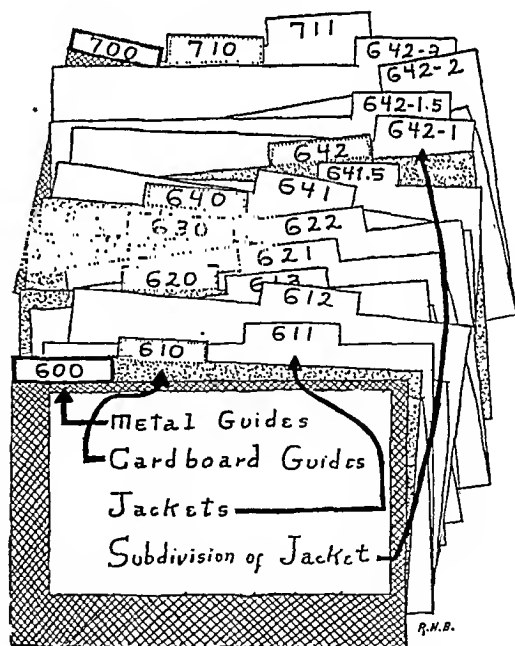 711
700
710
642-3
642-2
642-1.5
642-1
642
641.5
641
640
622
630
621
620
613
612
611
610
600
Metal Guides
Cardboard Guides
Jackets
Subdivision of Jacket
R.H.B.